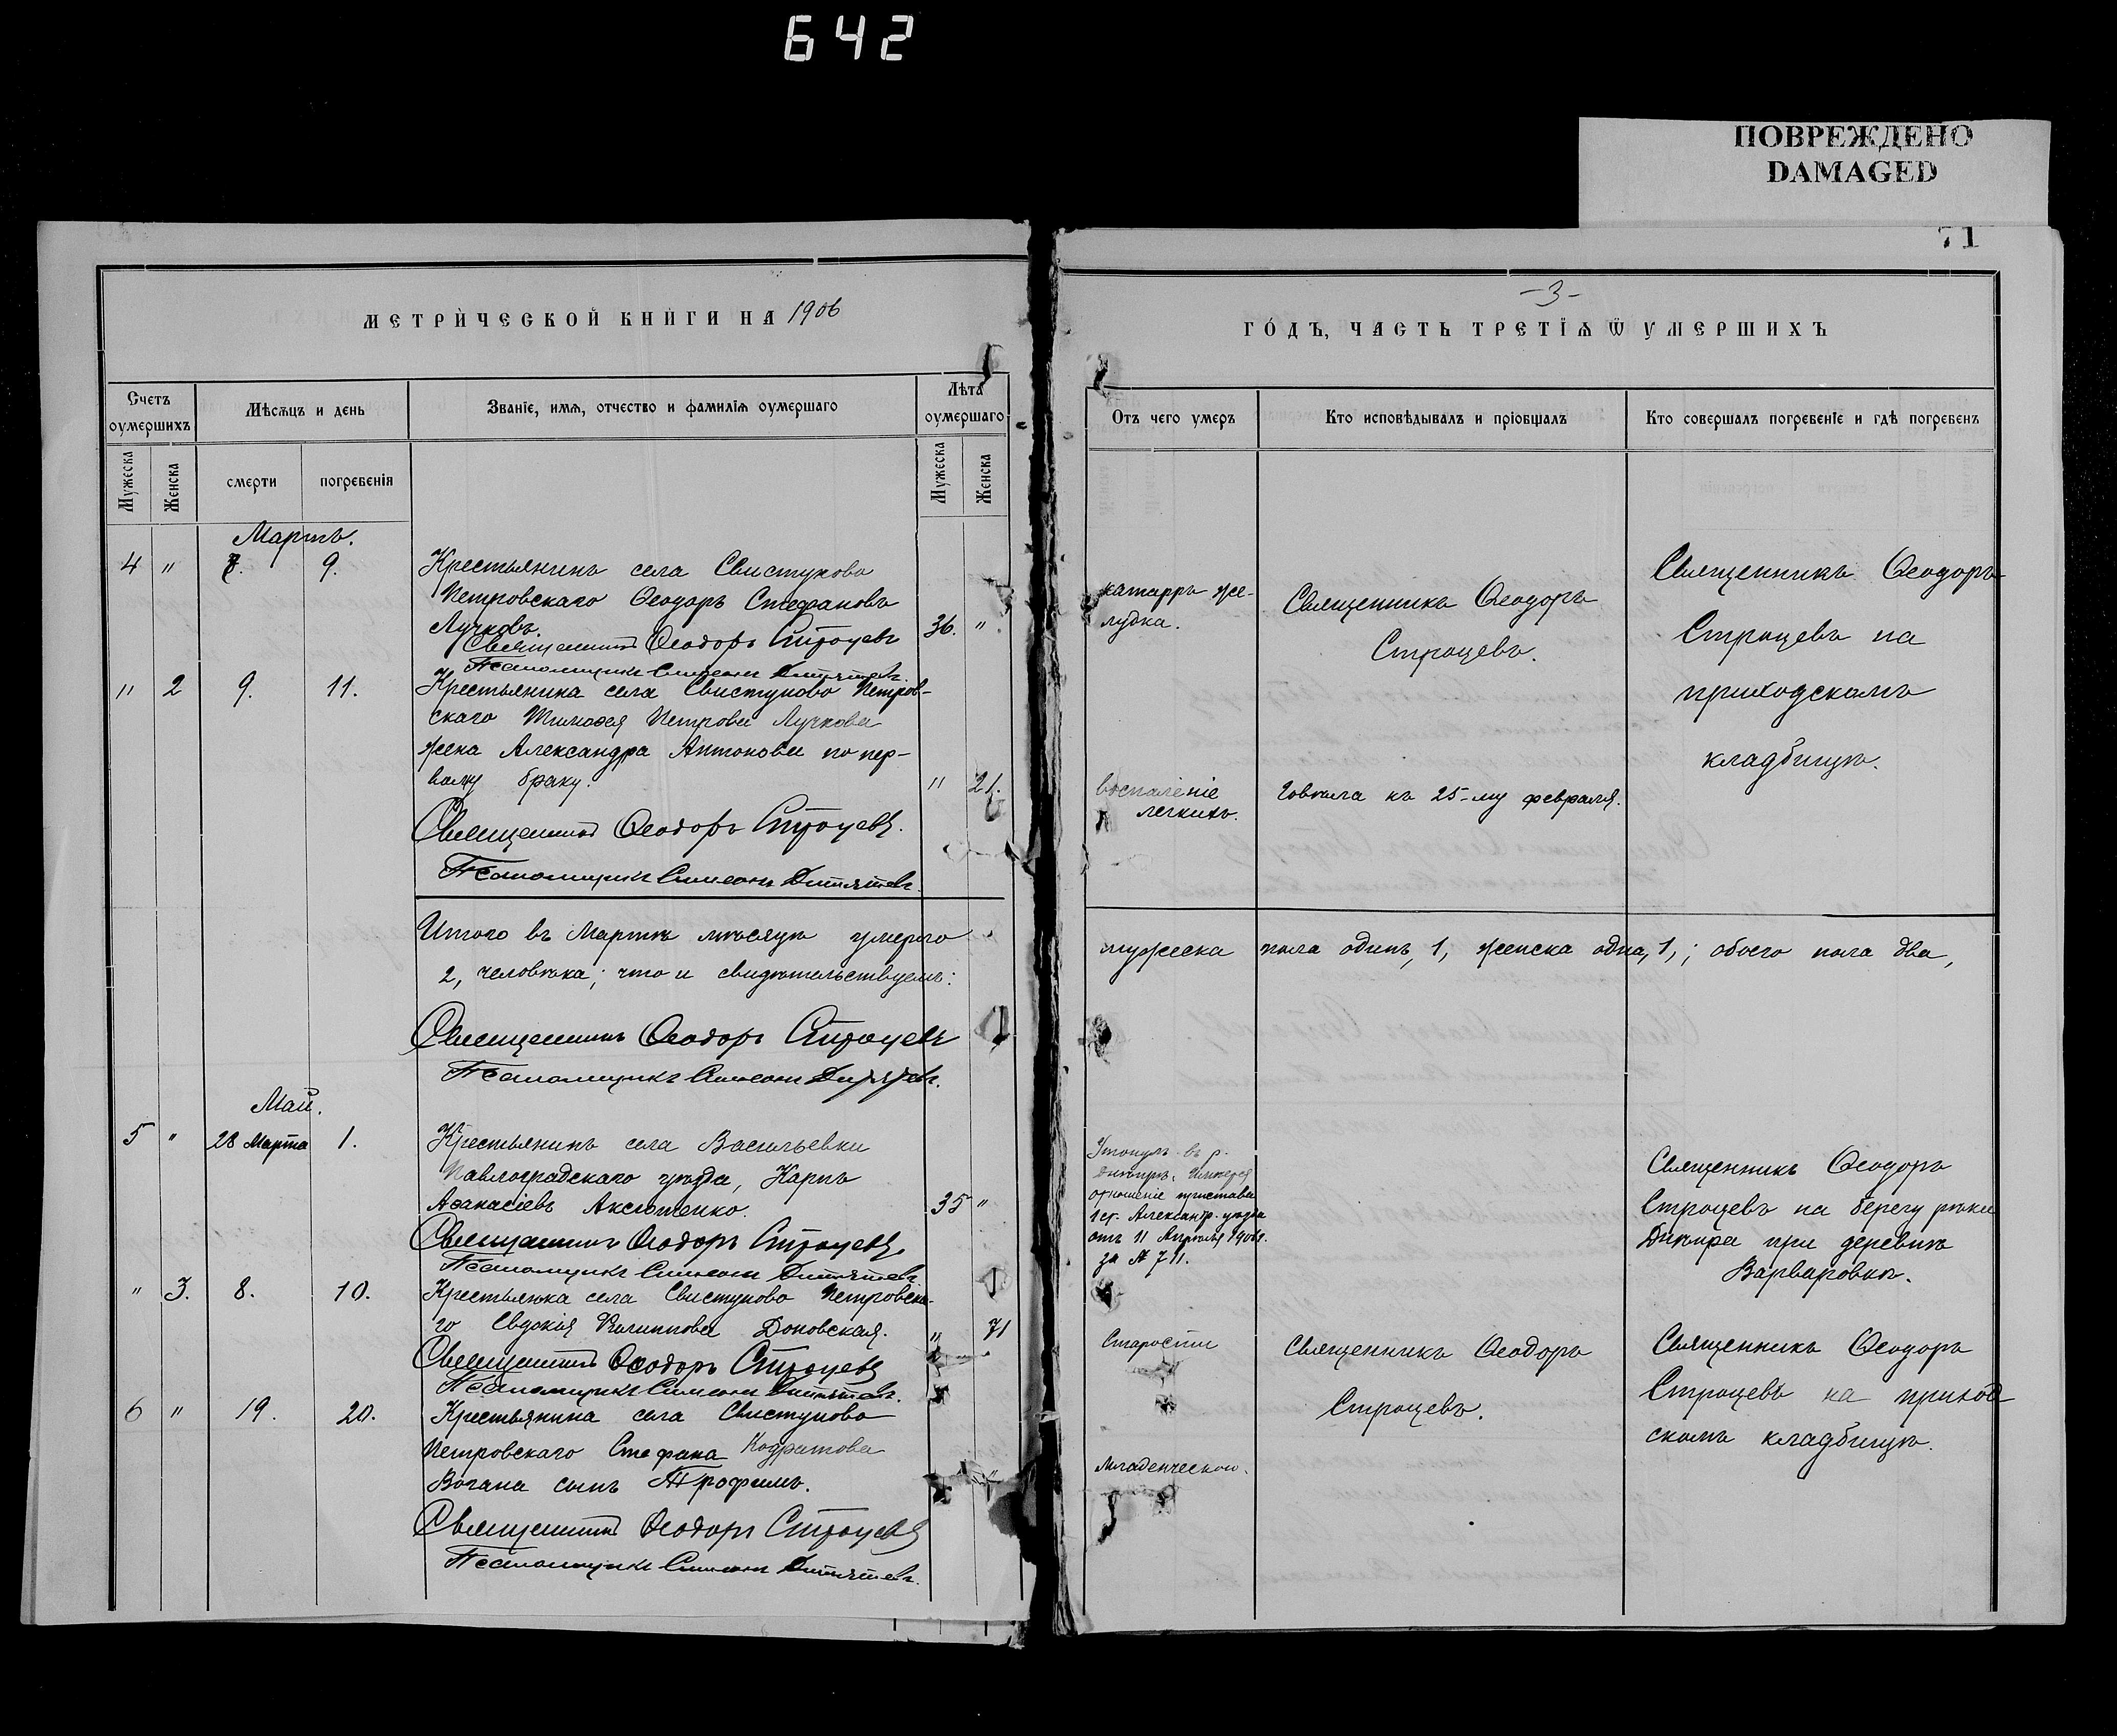 642
ПОВРЕЖДЕНО
DAMAGED
71
МЕТРИЧЕСКОЙ КНИГИ НА 1906
-3-
ГОДЪ, ЧАСТЬ ТРЕТІѦ Ѿ УМЕРШИХЪ
Счетъ оумершихъ
Мѣсѧцъ и день
Званіе, имѧ, отчество и фамиліѧ оумершаго
Лѣта оумершаго
Отъ чего умеръ
Кто исповѣдывалъ и пріобщалъ
Кто совершалъ погребеніе и гдѣ погребенъ
Мужеска
Женска
смерти
погребенія
Мужеска
Женска
Мартъ.
4 " 7. 9.
Крестьянинъ села Свистуново
Петровскаго Ѳеодоръ Стефановъ
Лучковъ.
36. "
катарръ же-
лудка.
Священникъ Ѳеодоръ
Строцевъ.
Священникъ Ѳеодоръ
Строцевъ на
приходскомъ
кладбищѣ.
Священникъ Ѳеодоръ Строцевъ
Псаломщикъ Симеонъ
" 2 9. 11.
Крестьянина села Свистуново Петров-
скаго Тимоѳея Петрова Лучкова
жена Александра Антонова по пер-
вому браку.
" 21.
воспаленіе
легкихъ.
Говѣла къ 25-му февраля.
Священникъ Ѳеодоръ Строцевъ.
Псаломщикъ Симеонъ
Итого въ Мартѣ мѣсяцѣ умерло
мужеска пола одинъ, 1, женска одна, 1,; обоего пола два,
2, человѣка; что и свидѣтельствуемъ:
Священникъ Ѳеодоръ Строцевъ
Псаломщикъ Симеонъ
Май.
5 " 28 Марта 1.
Крестьянинъ села Васильевки
Павлоградскаго уѣзда, Карпъ
Аѳанасіевъ Аксютенко.
35 "
Утонулъ въ р.
Днѣпръ.
отношеніе пристава
1 ст. Александр. уѣзда
отъ 11 Апрѣля 1906 г.
за № 711.
Священникъ Ѳеодоръ
Строцевъ на берегу рѣки
Днѣпра при деревнѣ
Варваровкѣ.
Священникъ Ѳеодоръ Строцевъ.
Псаломщикъ Симеонъ
" 3. 8. 10.
Крестьянка села Свистуново Петровска-
го Евдокія Филиппова Доновская.
" 71
Старости
Священникъ Ѳеодоръ
Строцевъ.
Священникъ Ѳеодоръ
Строцевъ на приход
скомъ кладбищѣ.
Священникъ Ѳеодоръ Строцевъ
Псаломщикъ Симеонъ
6 " 19. 20.
Крестьянина села Свистуново
Петровскаго Стефана Кодратова
Вогана сынъ Трофимъ.
Младенческой.
Священникъ Ѳеодоръ Строцевъ
Псаломщикъ Симеонъ